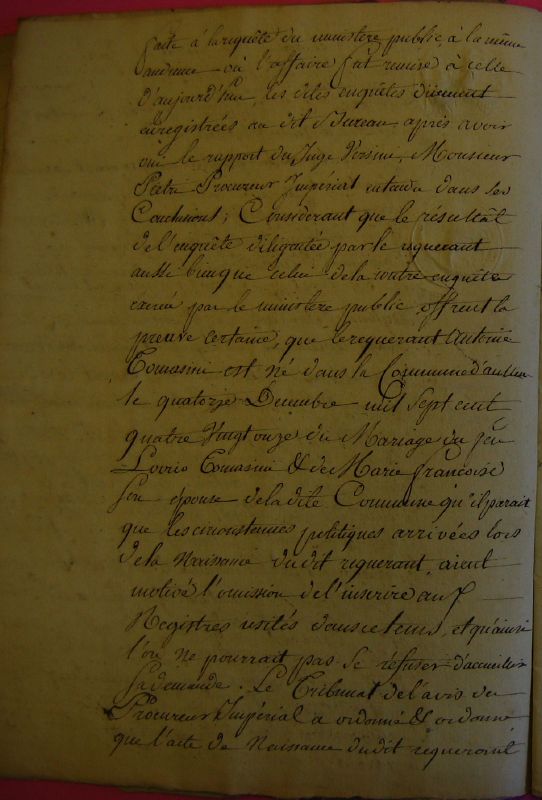 faite à la requête du ministère public, à la même
audience où l'affaire fut remise à celle
d'aujourd'hui, les dites enquêtes dûement
enregistrées au dit Bureau, après avoir
oui le rapport du Juge Versini, Monsieur
Pietri Procureur Impérial entendu dans ses
Conclusions; Considerant que le résultat
de l'enquête diligentée par le requerant
aussi bien que celui de la contre enquête
exercé par le ministere public, offrent la
preuve certaine, que le requerant Antoine
Tomasini est né dans la Commune d'
le quatorze Decembre mil sept cent
quatre Vingt onze du Mariage du feu
Tomasini & de Marie françoise
son epouse de la dite Commune qu'il parait
que les circonstances politiques arrivées lors
de la Naissance du dit requerant, aient
motivé l'omission de l'inscrire aux
Registres usités dans ce tems, et qu'ainsi
l'on ne pourrait pas se réfuser d'accueillir
sa demande. Le Tribunal de l'avis du
Procureur Impérial a ordonné & ordonne
que l'acte de Naissance du dit requerant